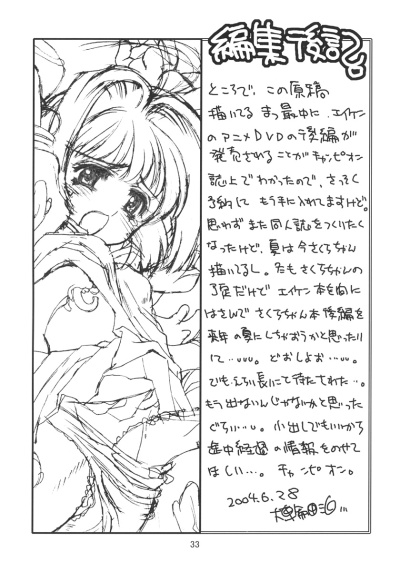 編集後記。
ところで、この原稿
描いてる まっ最中に エイケン
のアニメDVDの後編が
発売されることがチャンピオン
誌上でわかったので、さっそく
予約して もう手に入れてますけど。
思わず また同人誌をつくりたく
なったけど、夏は今さくらちゃん
描いてるし。 さくらちゃんの
だけど エイケン本を間に
はさんで さくらちゃん本 後編を
来年の夏にしちゃおうかと思ったり
して…。 どおしよお…。
でも 長いこと待たされた…。
もう出ないんじゃないかと思った
ぐらい…。 小出しでもいいから
途中経過の情報をのせて
ほしい…。 チャンピオン。
2004.6.28
33